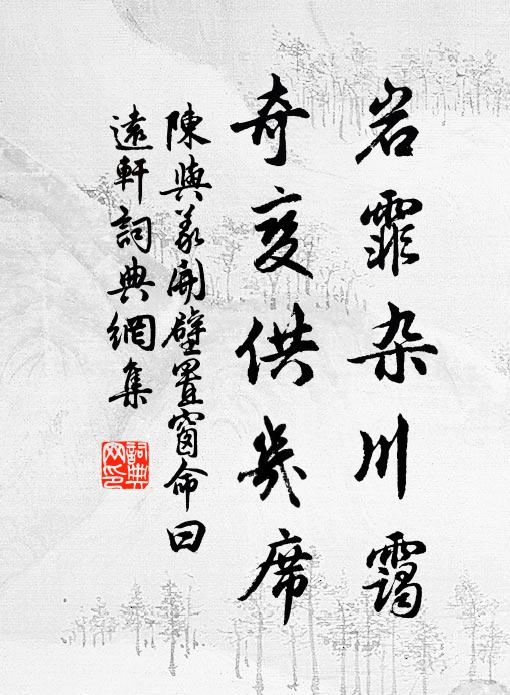 岩霏杂川靄
奇变供几席
陳與義開壁置窗命曰
遠軒詞典網集
詞典
网印